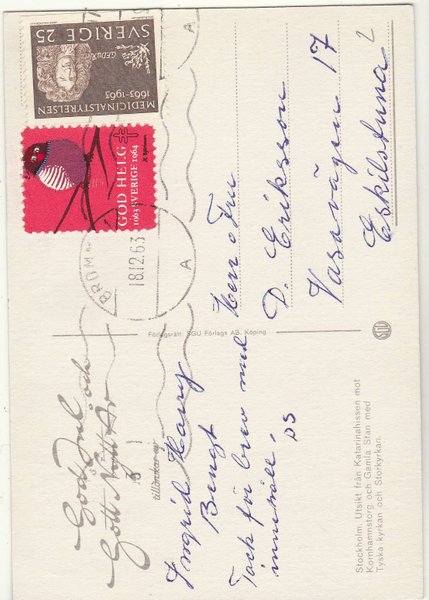 God Jul och
Gott Nytt År
tillönskar
Ingrid Harry
Bengt
Tack för brev med
innehåll.
DS
Stockholm. Utsikt från Katarinahissen mot
Kornhamnstorg och Gamla Stan med
Tyska kyrkan och Storkyrkan.
Förlagsrätt. SGU Förlags AB. Köping
SGU
SVERIGE 25
MEDICINALSTYRELSEN
1663-1963
GOD HELG
1963 SVERIGE 1964
BROM
18.12.63
A
A
Herr o Fru
D. Eriksson
Vasavägen 17
2
Eskilstuna